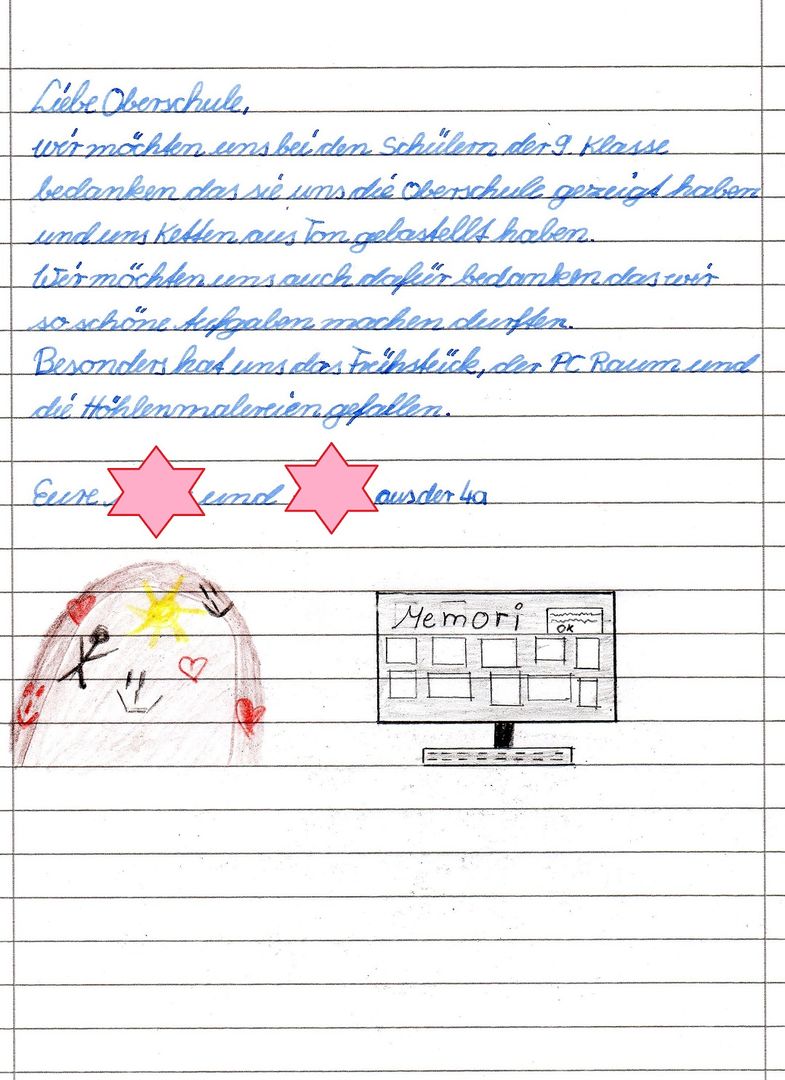 Liebe Oberschule,
wir möchten uns bei den Schülern der 9. Klasse
bedanken das sie uns die Oberschule gezeigt haben
und uns Ketten aus Ton gebastellt haben.
Wir möchten uns auch dafür bedanken das wir
so schöne Aufgaben machen durften.
Besonders hat uns das Frühstück, der PC Raum und
die Höhlenmalereien gefallen.
Eure und aus der 4a
Memori
OK